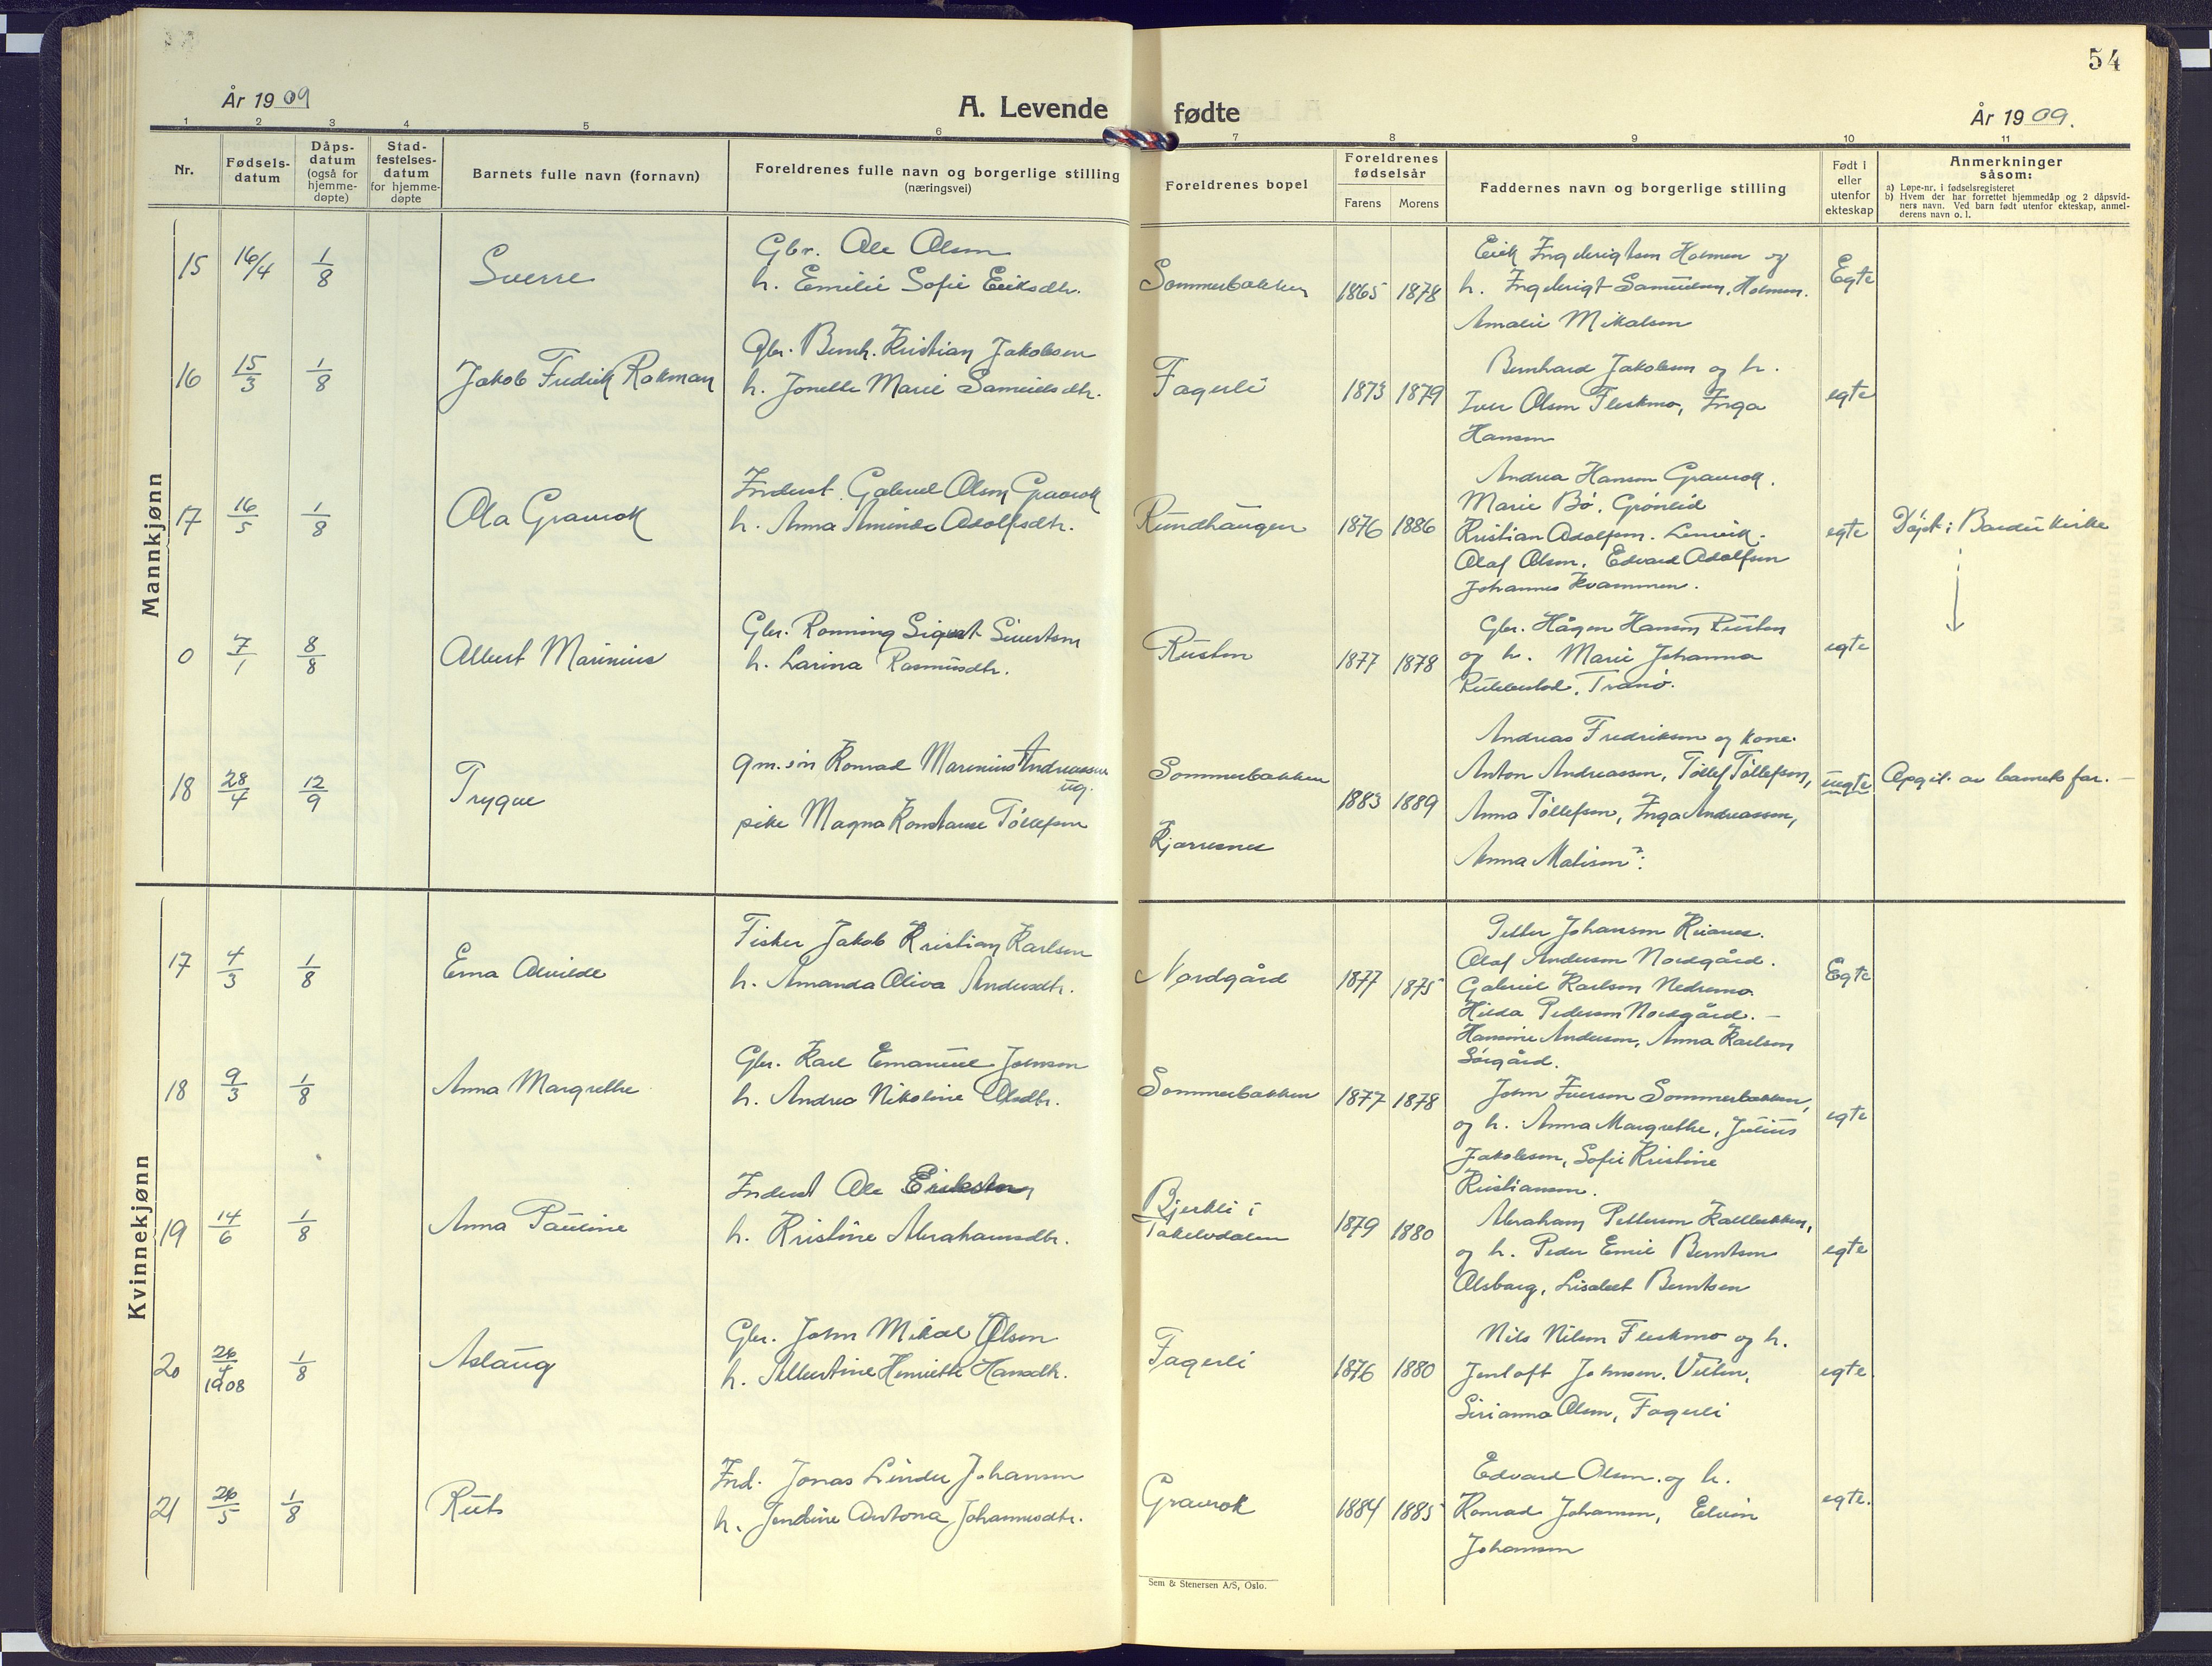 54
År 1909
A. Levende fødte
År 1909.
1 2 3 4 5 6 7 8 9 10 11
Nr.
Fødsels-
datum
Dåps-
datum
(også for
hjemme-
døpte)
Stad-
festelses-
datum
for hjemme-
døpte
Barnets fulle navn (fornavn)
Foreldrenes fulle navn og borgerlige stilling
(næringsvei)
Foreldrenes bopel
Foreldrenes
fødselsår
Farens Morens
Faddernes navn og borgerlige stilling
Født i
eller
utenfor
ekteskap
Anmerkninger
såsom:
a) Løpe-nr. i fødselsregisteret
b) Hvem der har forrettet hjemmedåp og 2 dåpsvid-
ners navn. Ved barn født utenfor ekteskap, anmel-
derens navn o. l.
Mannkjønn
15 16/4 1/8 Sverre
Gbr. Ole Olsen
h. Emilie Sofie Eriksdtr.
Sommerbakken 1865 1878
Erik Ingebrigtsen Holmen og
h. Ingebrigt Samuelsen, Holmen.
Amalie Mikalsen
Egte
16 15/3 1/8 Jakob Fredrik Rokman
Gbr. Bernh. Kristian Jakobsen
h. Jonette Marie Samuelsdtr.
Fagerli 1873 1879
Bernhard Jakobsen og h.
Iver Olsen Fleskmo, Inga
Hansen
egte
17 16/5 1/8 Ola Gravrok
Inderst. Gabriel Olsen Gravrok
h. Anna Aminda Adolfsdtr.
Rundhaugen 1876 1886
Andrea Hansen Gravrok.
Marie Bø. Grønlid
Kristian Adolfsen. Lenvik.
Olaf Olsen. Edvard Adolfsen
Johannes Kvammen.
egte
Døpt i Bardu kirke
0 7/1 8/8 Albert Marinius
Gbr. Ronning Sigvart Sivertsen
h. Larina Rasmusdtr.
Rusten 1877 1878
Gbr. Hågen Hansen Rusten
og h. Marie Johanna
Tranø.
egte
18 28/4 12/9 Trygve
gm. søn Konrad Marenius Andreassen
ug.
pike Magna Konstanse Tollefsen
Sommerbakken
Kjærresnes
1883 1889
Andreas Fredriksen og kone.
Anton Andreassen, Tollef Tollefsen,
Anna Tollefsen, Inga Andreassen,
Anna Matisen?:
uegte
Opgit. av barnets far. –
Kvinnekjønn
17 4/3 1/8 Erna Alvilde
Fisker Jakob Kristian Karlsen
h. Amanda Oliva Andersdtr.
Nordgård 1877 1875
Petter Johansen
Olaf Andersen Nordgård.
Gabriel Karlsen Nedremo.
Hilda Pedersen Nordgård. –
Hansine Andersen, Anna Karlsen
Sørgård.
Egte
18 9/3 1/8 Anna Margrethe
Gbr. Karl Emanuel Johnsen
h. Andrea Nikoline Olsdtr.
Sommerbakken 1877 1878
John Iversen Sommerbakken,
og h. Anna Margrethe, Julius
Jakobsen, Sofie Kristine
Kristiansen.
egte
19 14/6 1/8 Anna Pauline
Inderst Ole Eriksen
h. Kristine Abrahamsdtr.
Bjerkli i
Takelvdalen
1879 1880
Abraham Pettersen
og h. Peder Emil Berntsen
Olsborg, Lisabet Berntsen
egte
20 26/4 1908 1/8 Aslaug
Gbr. John Mikal Olsen
h. Albertine Henriette Hansdtr.
Fagerli 1876 1880
Nils Nilsen Fleskmo og h.
Jentoft Johnsen. Velten,
Sirianna Olsen, Fagerli
egte
21 26/5 1/8 Ruts
Ind. Jonas Linder Johansen
h. Jendine Antona Johannesdtr.
Gravrok 1884 1885
Edvard Olsen. og h.
Konrad Johansen, Elvin
Johansen
egte.
Sem & Stenersen A/S, Oslo.